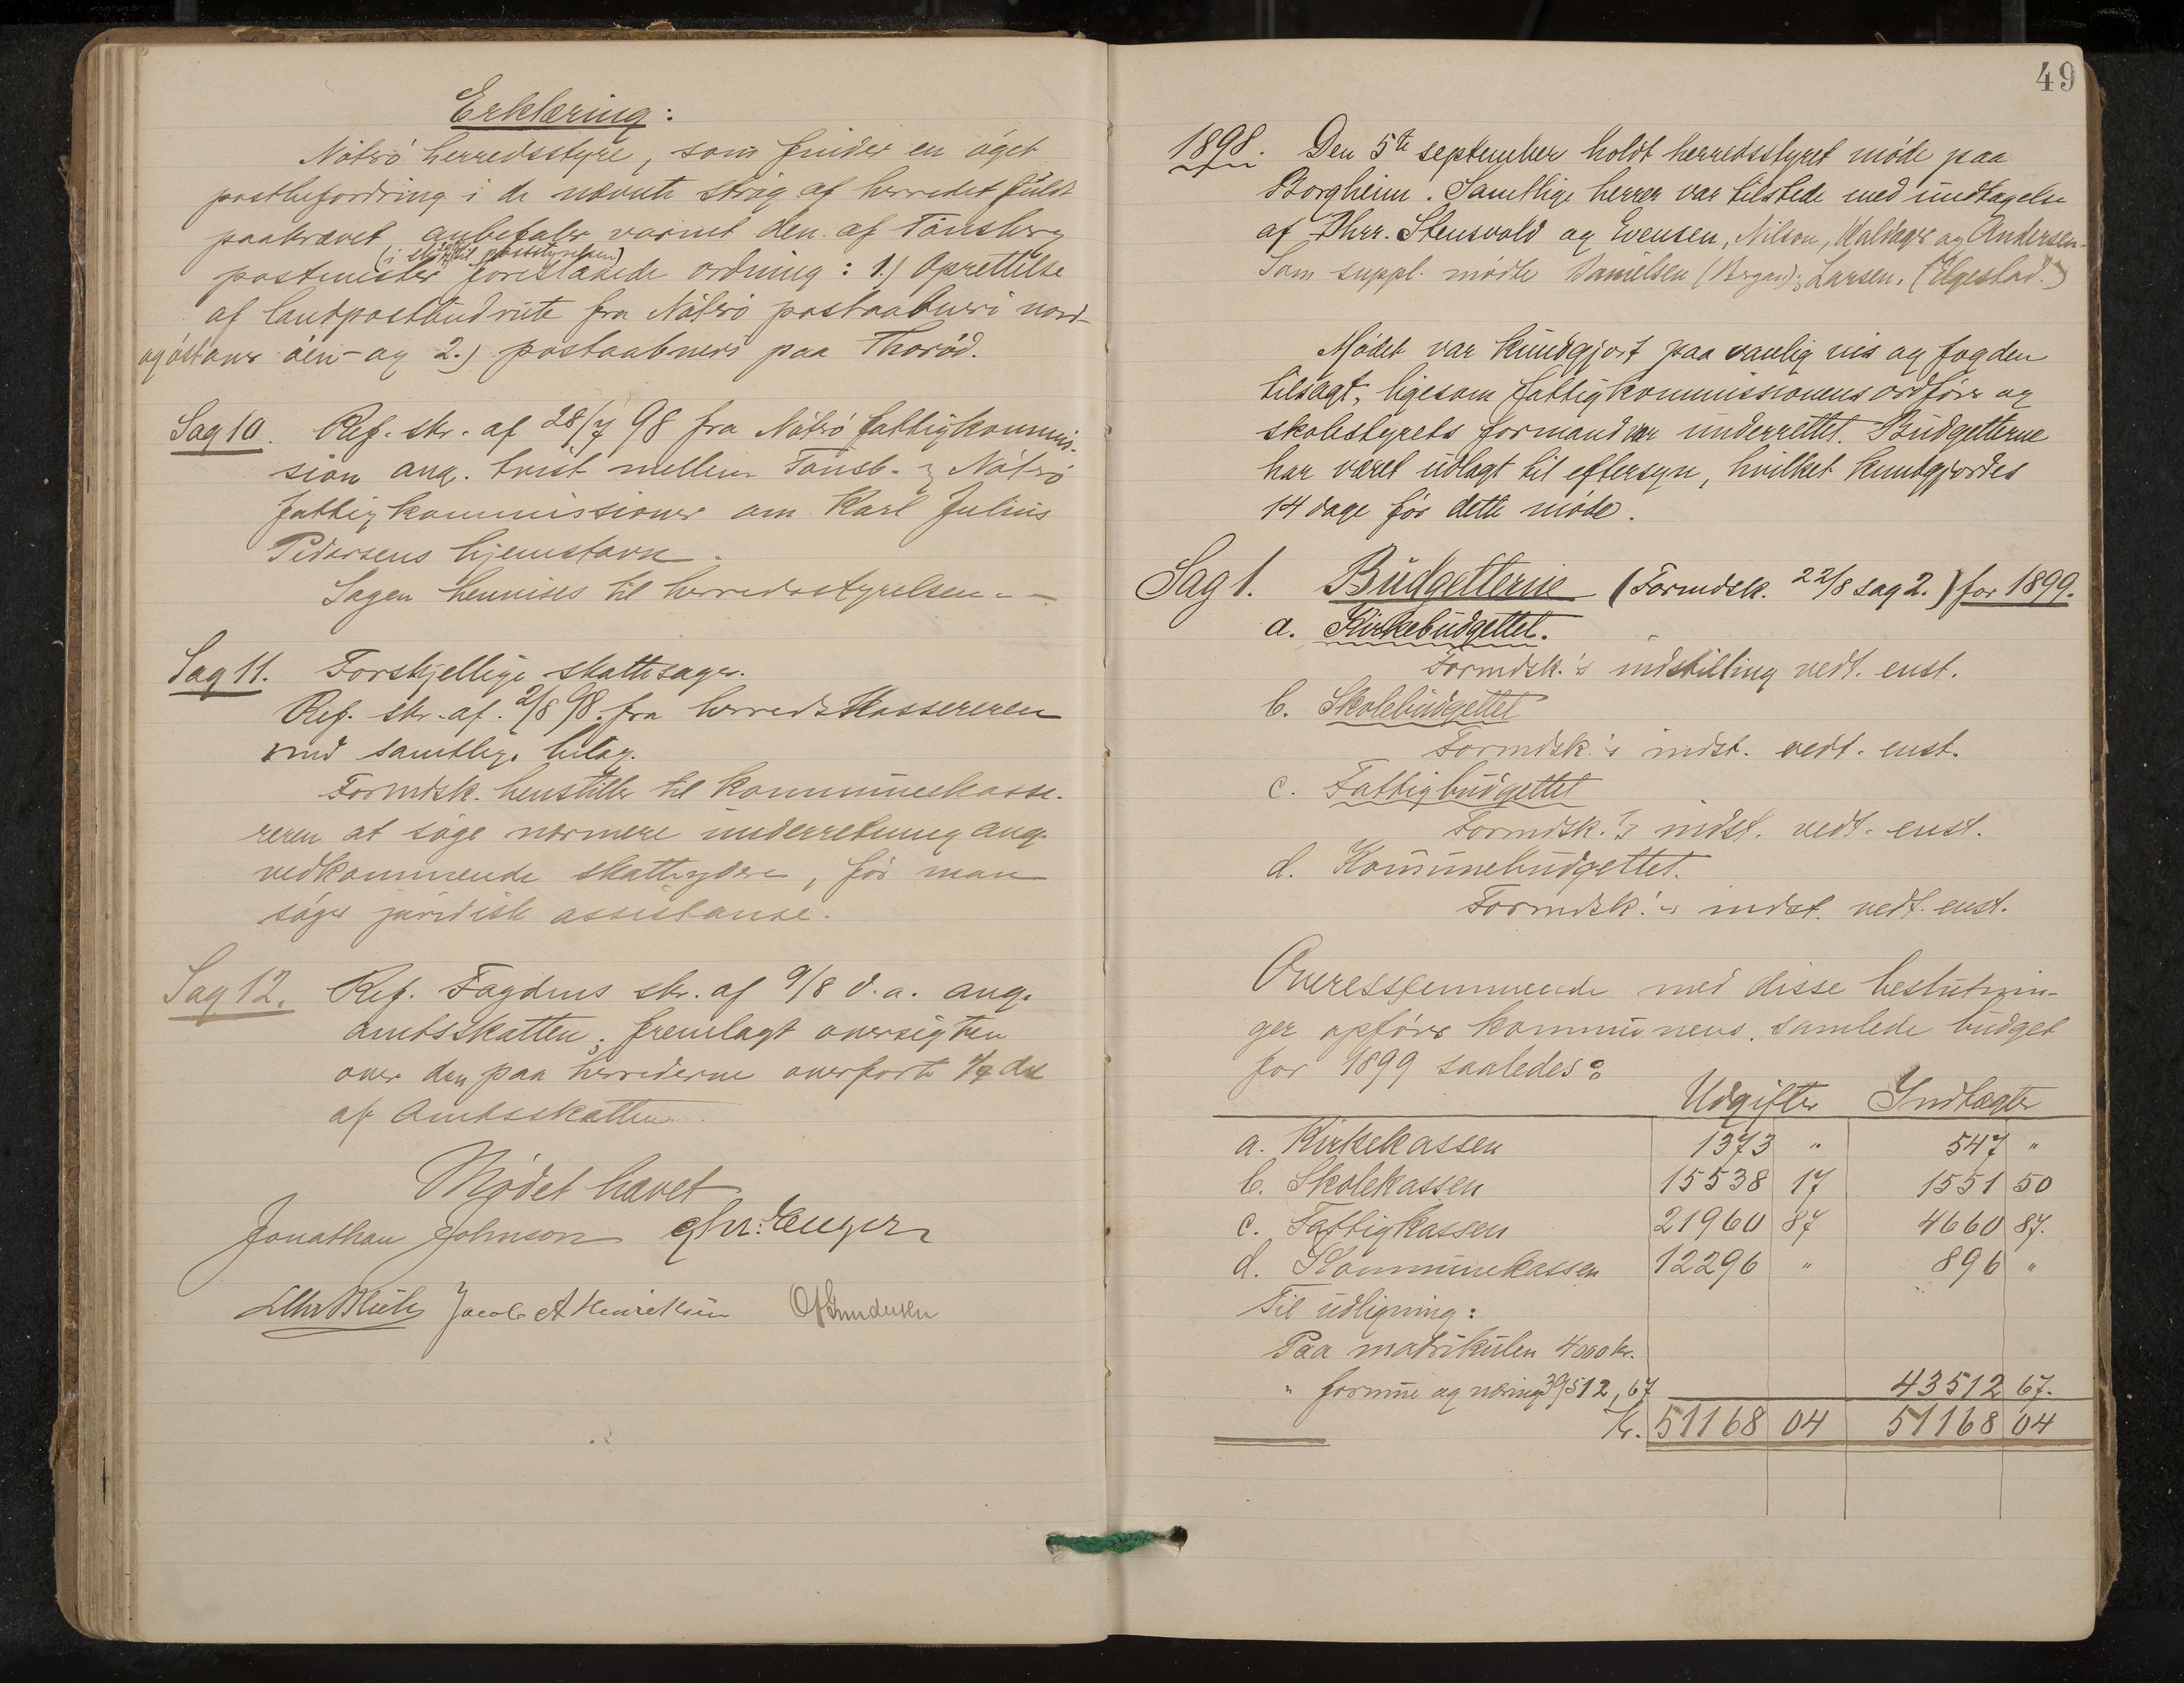 Erklæring:
Nøtrø herredsstyre, som finder en øget
postbefordring i de nævnte strøg af herredet fuldt
paakrævet anbefaler varmt den af Tønsberg
(i skr. til poststyrelsen)
postmester foreslaaede ordning: 1.) Oprettelse
af landpostbudrute fra Nøtrø postaabneri nord-
og østover øen - og 2.) postaabneri paa Thorød.
Sag 10. Ref. skr. af 28/7 98 fra Nøtrø fattigkommis-
sion ang. tvist mellem Tønsb. & Nøtrø
fattigkommissioner om Karl Julius
Pedersens hjemstavn.
Sagen henvises til herredsstyrelsen. -
Sag 11. Forskjellige skattesager.
Ref. skr. af 2/8 98. fra herredskassereren
med samtlige bilag.
Formdsk. henstiller til kommunekasse-
reren at søge nærmere underretning ang.
vedkommende skatteydere, før man
søger juridisk assistanse.
Sag 12. Ref. Fogdens skr. af 9/8 d.a. ang.
amtsskatten; fremlagt oversigten
over den paa herrederne overførte del
af Amtsskatten.
Mødet hævet
Jonathan Johnson Chr. Unger
Jacob A Henriksen O Gundersen
49
1898. Den 5te september holdt herredsstyret møde paa
Borgheim. Samtlige herrer var tilstede med undtagelse
af Dhrr. Stensvold og Evensen, Nilson, Kaldager og Andersen.
Som suppl. mødte Danielsen (Bergan) & Larsen. (Elgestad.)
Mødet var kundgjort paa vanlig vis og fogden
tilsagt, ligesom fattigkommissionens ordfører og
skolestyrets formand var underrettet. Budgetterne
har været udlagt til eftersyn, hvilket kundgjordes
14 dage før dette møde.
Sag 1. Budgetterne (Formdsk. 22/8 sag 2.) for 1899.
a. Kirkebudgettet.
Formdsk.'s indstilling vedt. enst.
b. Skolebudgettet
Formdsk.'s indst. vedt. enst.
c. Fattigbudgettet
Formdsk.'s indst. vedt. enst.
d. Kommunebudgettet.
Formdsk.'s indst. vedt. enst.
Overensstemmende med disse beslutnin-
ger opføres kommunens samlede budget
for 1899 saaledes:
Udgifter Indtægter
a. Kirkekassen 1373 " 547 "
b. Skolekassen 15538 17 1551 50
c. Fattigkassen 21960 87 4660 87.
d. Kommunekassen 12296 " 896 "
Til udligning:
Paa matrikulen 4000 kr.
" formue og næring 39512,67 43512 67.
Kr. 51168 04 51168 04